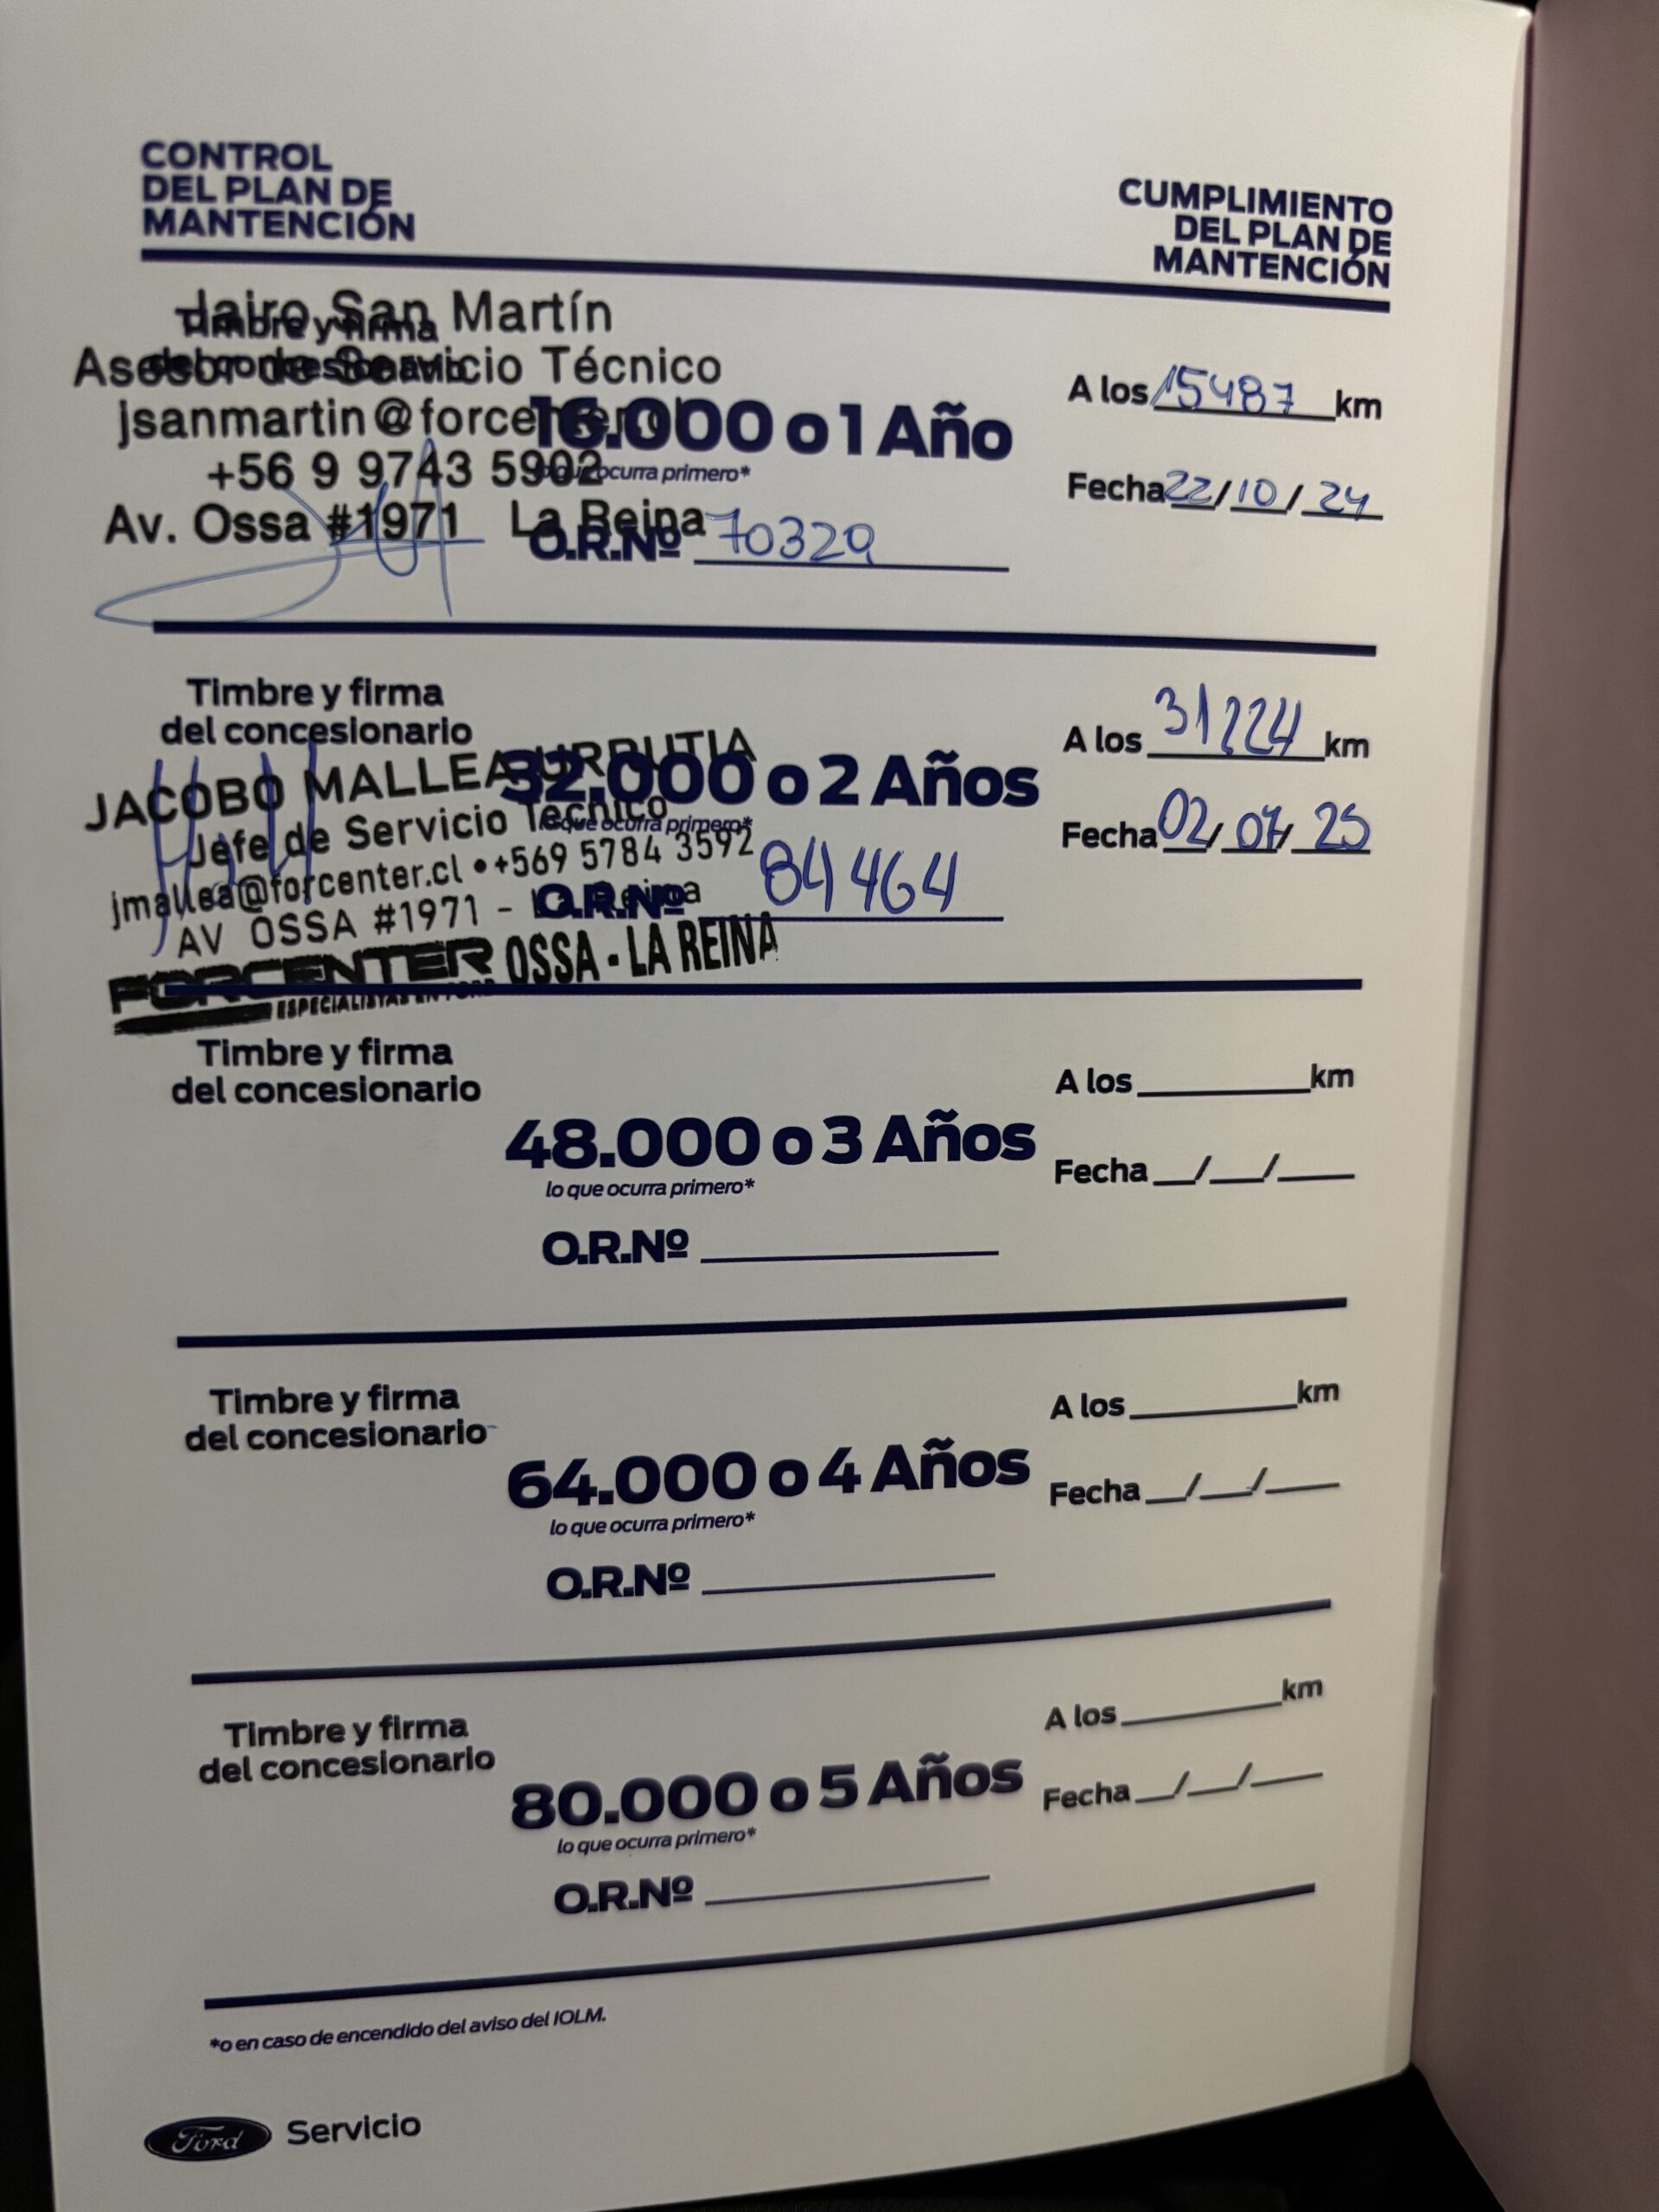 CONTROL
DEL PLAN DE
MANTENCIÓN
CUMPLIMIENTO
DEL PLAN DE
MANTENCIÓN
Timbre y firma
del concesionario
Jairo San Martín
Asesor de Servicio Técnico
jsanmartin@forcenter.cl
+56 9 9743 5902
Av. Ossa #1971 La Reina
16.000 o 1 Año
lo que ocurra primero*
O.R.Nº 70329
A los 15487 km
Fecha 22/10/24
Timbre y firma
del concesionario
JACOBO MALLEA URRUTIA
Jefe de Servicio Técnico
jmallea@forcenter.cl • +569 5784 3592
AV OSSA #1971 - La Reina
FORCENTER OSSA - LA REINA
ESPECIALISTAS EN FORD
32.000 o 2 Años
lo que ocurra primero*
O.R.Nº 84464
A los 31224 km
Fecha 02/07/25
Timbre y firma
del concesionario
48.000 o 3 Años
lo que ocurra primero*
O.R.Nº
A los ________ km
Fecha __/__/__
Timbre y firma
del concesionario
64.000 o 4 Años
lo que ocurra primero*
O.R.Nº
A los ________ km
Fecha __/__/__
Timbre y firma
del concesionario
80.000 o 5 Años
lo que ocurra primero*
O.R.Nº
A los ________ km
Fecha __/__/__
*o en caso de encendido del aviso del IOLM.
Ford Servicio